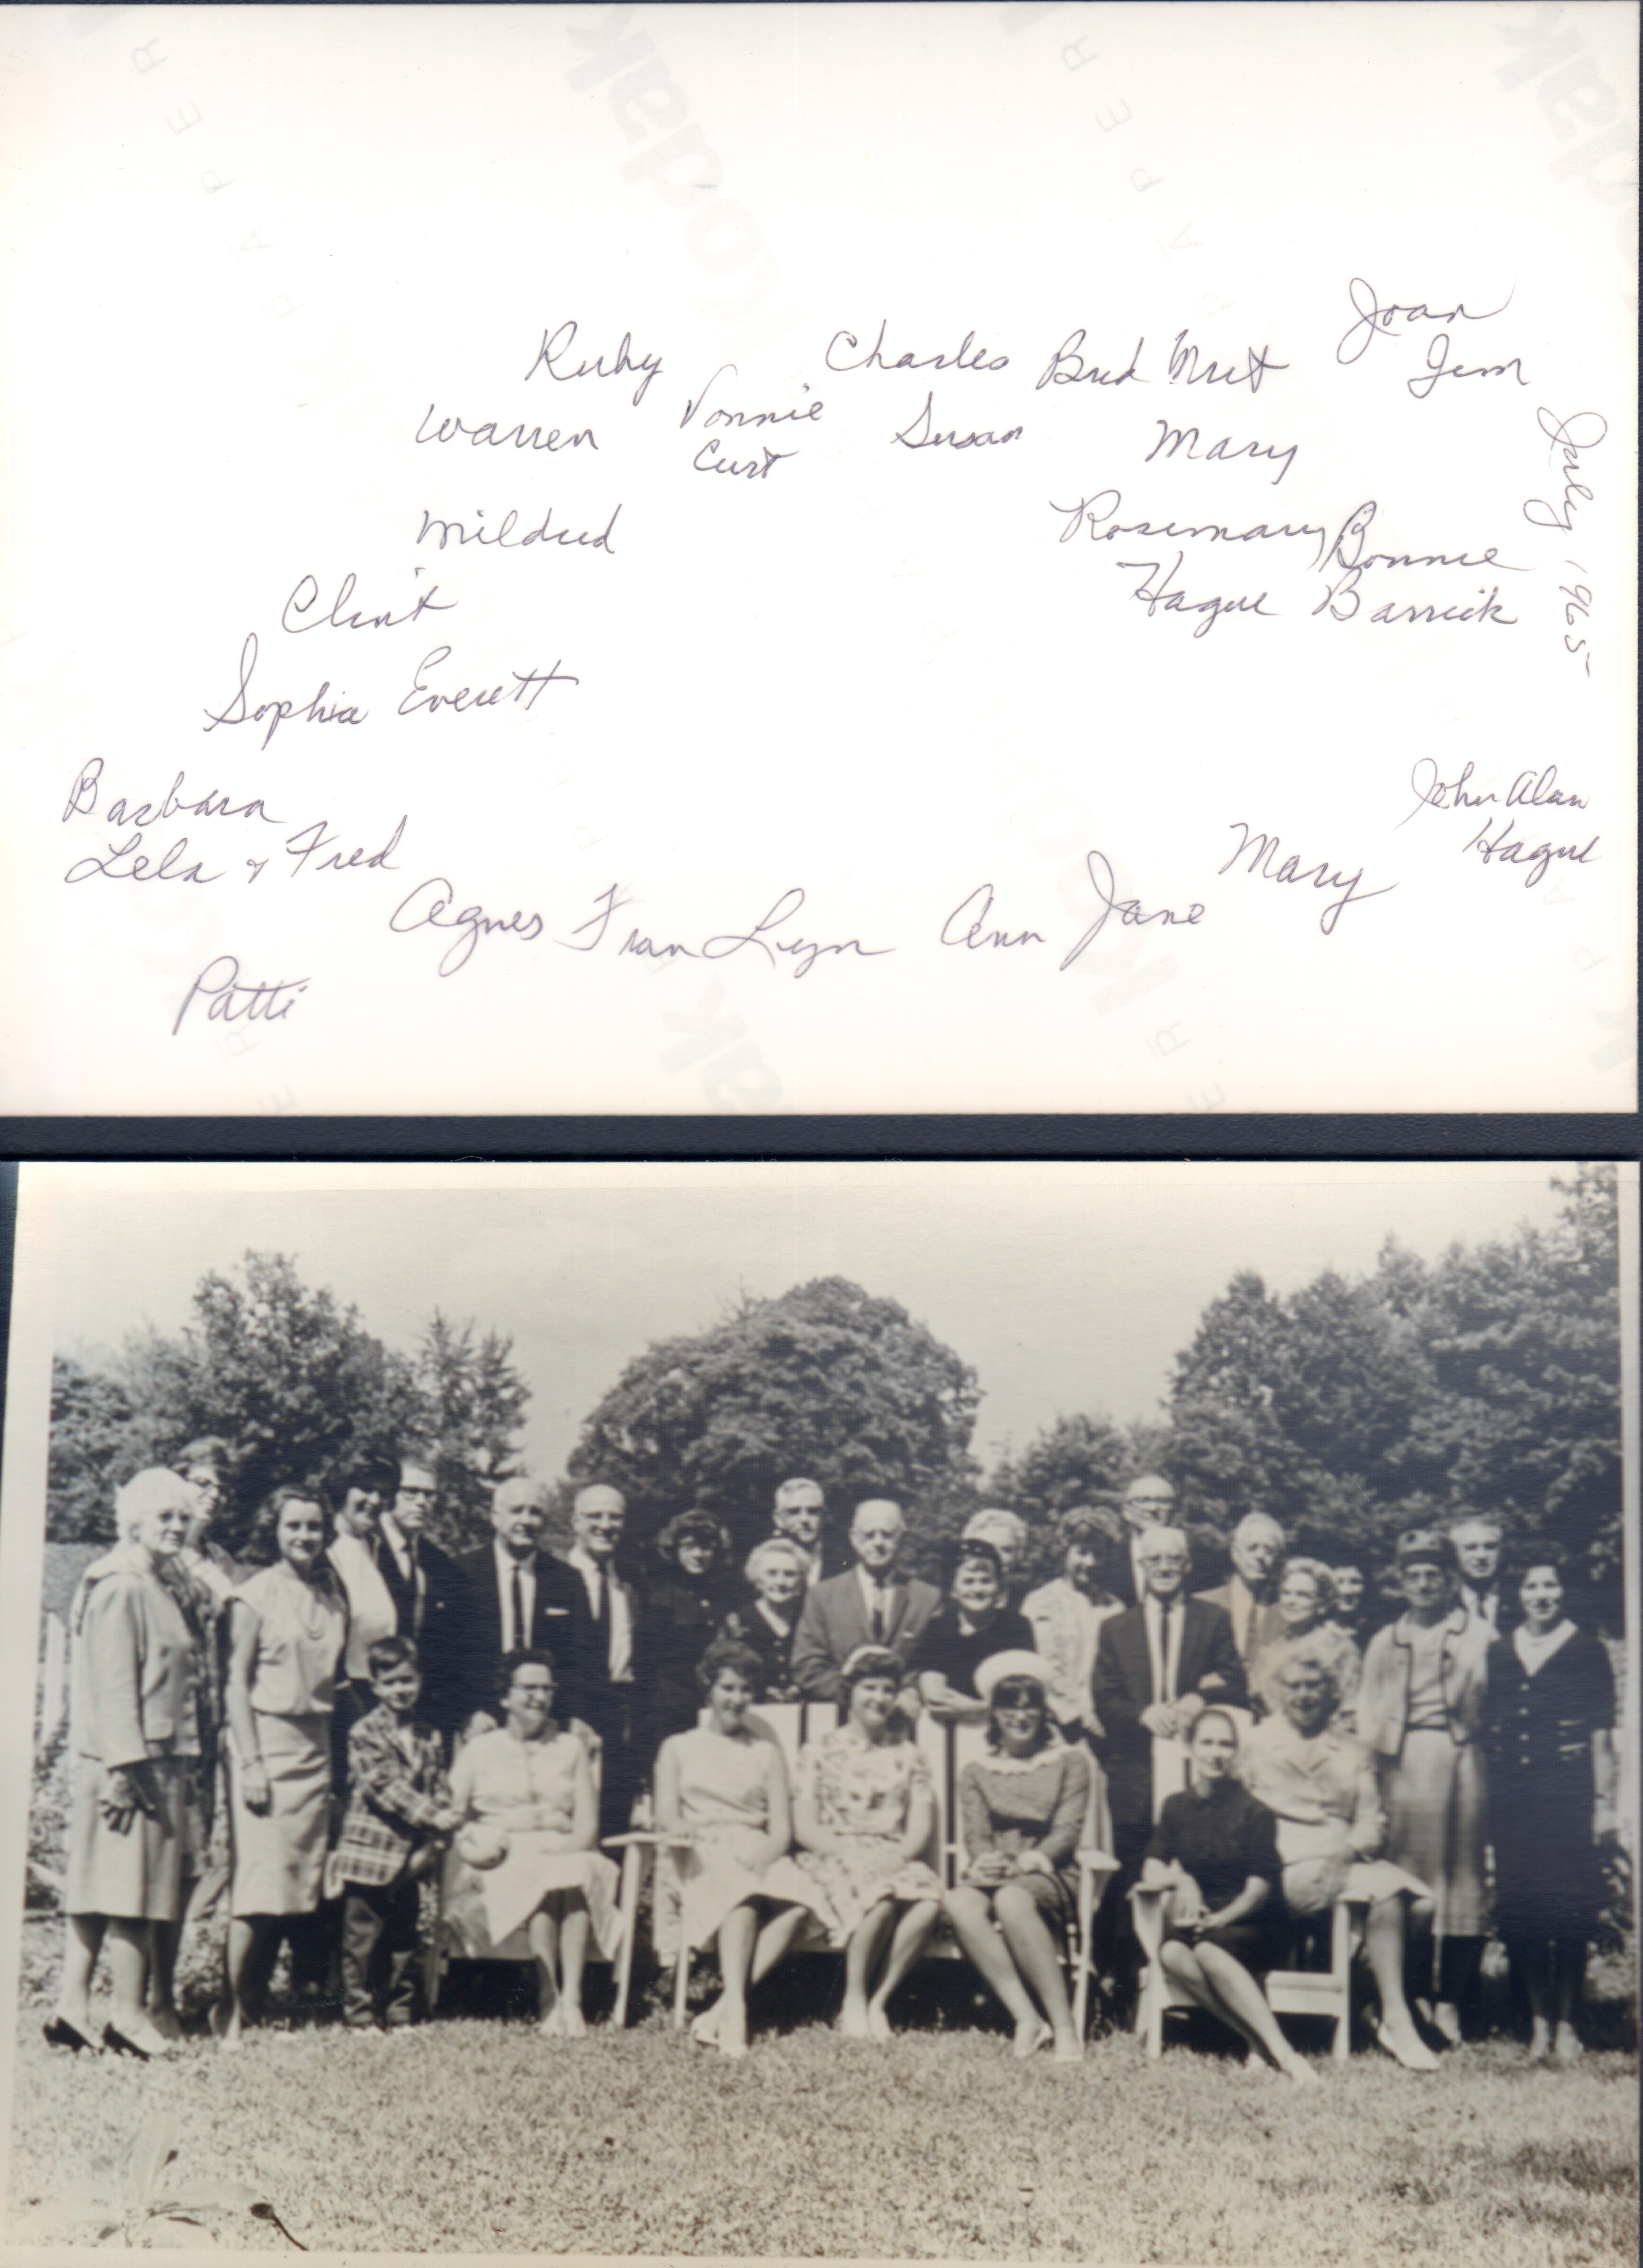 Joan
Ruby Charles Bud Mut Jim
Warren Vonnie Susan Mary
Curt
July 1965
Mildred Rosemary Bonnie
Clint Hague Barrick
Sophia Everett
Barbara John Alan
Lela & Fred Mary Hague
Agnes Fran Lyn Ann Jane
Patti
Kodak
PAPER